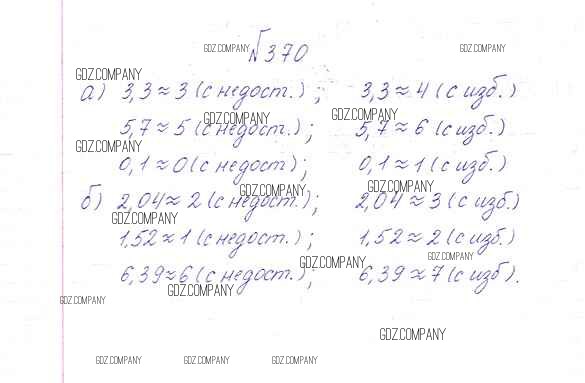 №370
GDZ.COMPANY GDZ.COMPANY
GDZ.COMPANY
а) 3,3≈3 (с недост.); 3,3≈4 (с изб.)
GDZ.COMPANY GDZ.COMPANY
5,7≈5 (с недост.); 5,7≈6 (с изб.)
GDZ.COMPANY
0,1≈0 (с недост.); 0,1≈1 (с изб.)
GDZ.COMPANY GDZ.COMPANY
б) 2,04≈2 (с недост.); 2,04≈3 (с изб.)
GDZ.COMPANY
1,52≈1 (с недост.); 1,52≈2 (с изб.)
GDZ.COMPANY GDZ.COMPANY
6,39≈6 (с недост.); 6,39≈7 (с изб).
GDZ.COMPANY
GDZ.COMPANY
GDZ.COMPANY
GDZ.COMPANY GDZ.COMPANY GDZ.COMPANY